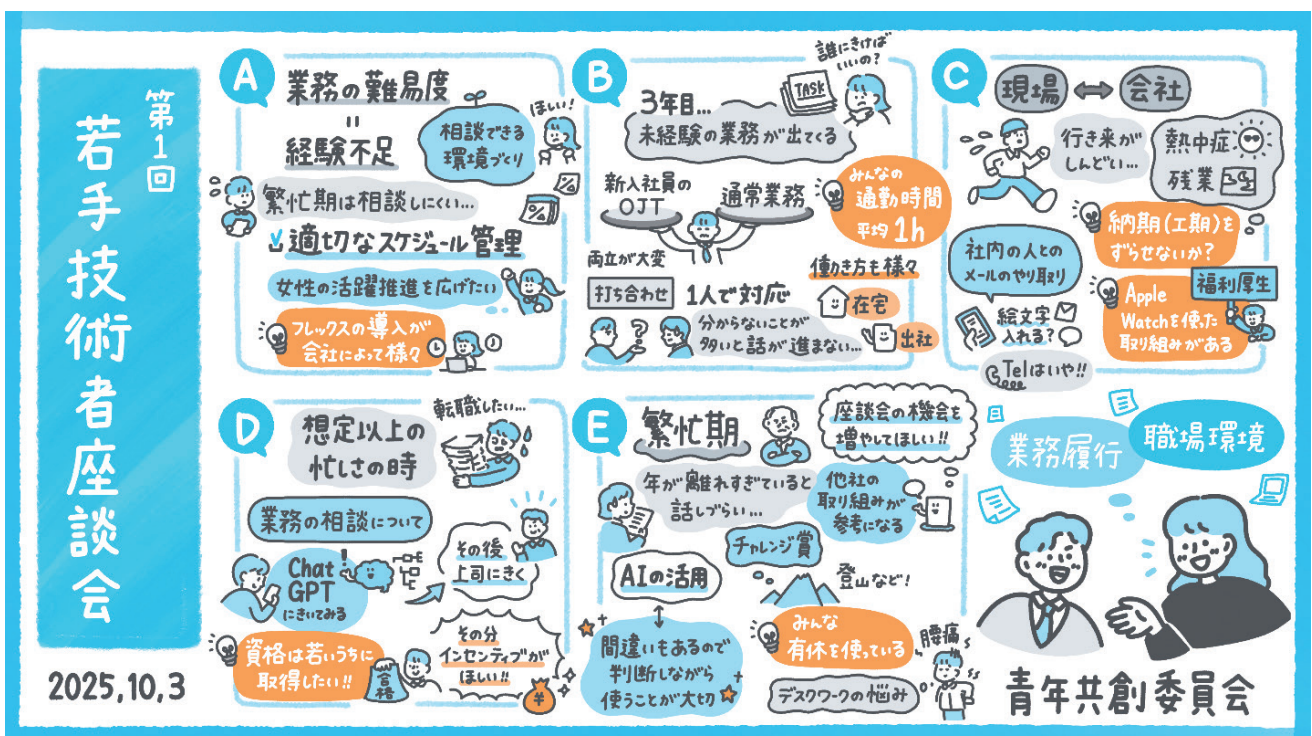 第1回
若手技術者座談会
2025,10,3
A
業務の難易度
=
経験不足
相談できる
環境づくり
ほしい!
繁忙期は相談しにくい…
%
%
適切なスケジュール管理
女性の活躍推進を広げたい
フレックスの導入が
会社によって様々
B
誰にきけば
いいの?
TASK
3年目…
未経験の業務が出てくる
新入社員の
OJT
通常業務
両立が大変
みんなの
通勤時間
平均1h
働き方も様々
在宅
出社
打ち合わせ
1人で対応
?
分からないことが
多いと話が進まない…
C
現場 ⇔ 会社
行き来が
しんどい…
熱中症
残業
納期(工期)を
ずらせないか?
社内の人との
メールのやり取り
絵文字
入れる?
Telはいや!!
福利厚生
Apple
Watchを使った
取り組みがある
D
想定以上の
忙しさの時
転職したい…
業務の相談について
Chat
GPT
にきいてみる
!
その後
上司にきく
資格は若いうちに
取得したい!!
合格
その分
インセンティブが
ほしい!!
¥
E
繁忙期
座談会の機会を
増やしてほしい!!
年が離れすぎていると
話しづらい…
他社の
取り組みが
参考になる
チャレンジ賞
登山など!
AIの活用
間違いもあるので
判断しながら
使うことが大切
みんな
有休を使っている
腰痛
デスクワークの悩み
業務履行
職場環境
青年共創委員会